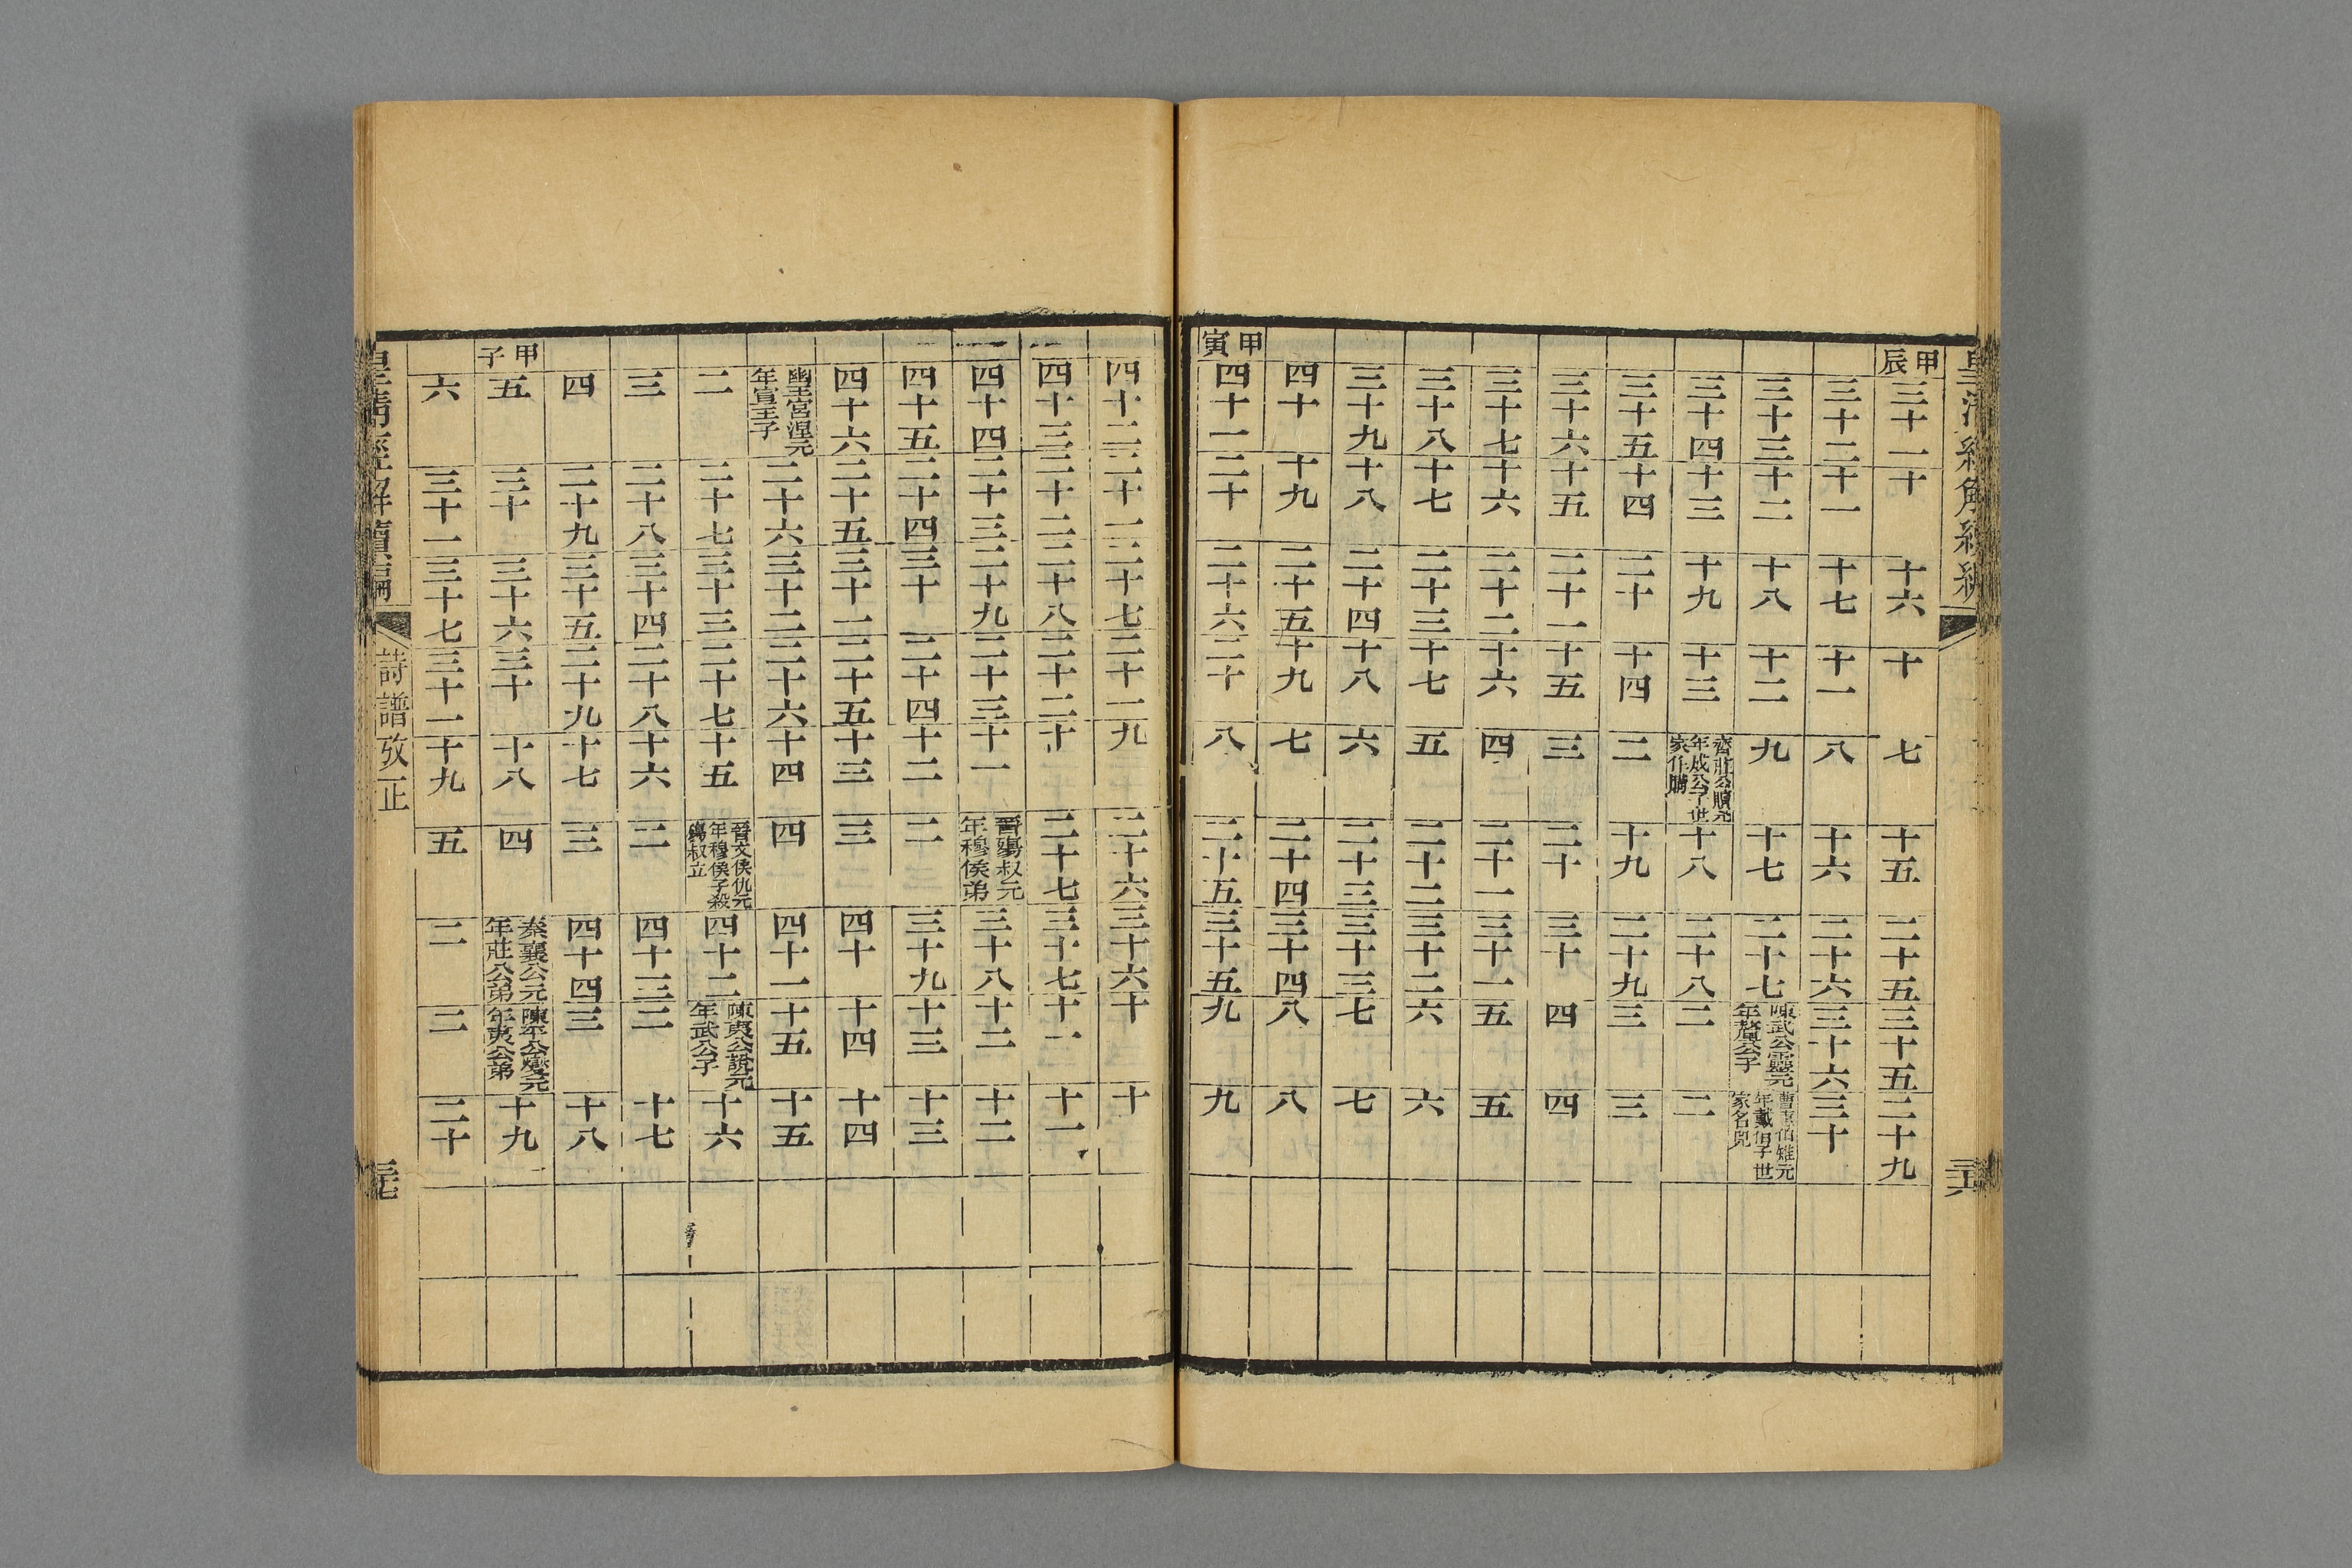 皇清經解續編 三十六
甲辰 三十一 十 十六 十 七 十五 二十五 三十五 二十九
三十二 十一 十七 十一 八 十六 二十六 三十六 三十
三十三 十二 十八 十二 九 十七 二十七 陳武公靈元年釐公子 曹惠伯雉元年戴伯子世家名兕
三十四 十三 十九 十三 齊莊公贖元年成公子世家作購 十八 二十八 二 二
三十五 十四 二十 十四 二 十九 二十九 三 三
三十六 十五 二十一 十五 三 二十 三十 四 四
三十七 十六 二十二 十六 四 二十一 三十一 五 五
三十八 十七 二十三 十七 五 二十二 三十二 六 六
三十九 十八 二十四 十八 六 二十三 三十三 七 七
四十 十九 二十五 十九 七 二十四 三十四 八 八
甲寅 四十一 二十 二十六 二十 八 二十五 三十五 九 九
四十二 二十一 二十七 二十一 九 二十六 三十六 十 十
四十三 二十二 二十八 二十二 十 二十七 三十七 十一 十一
四十四 二十三 二十九 二十三 十一 晉殤叔元年穆侯弟 三十八 十二 十二
四十五 二十四 三十 二十四 十二 二 三十九 十三 十三
四十六 二十五 三十一 二十五 十三 三 四十 十四 十四
幽王宮湼元年宣王子 二十六 三十二 二十六 十四 四 四十一 十五 十五
二 二十七 三十三 二十七 十五 晉文侯仇元年穆侯子殺殤叔立 四十二 陳夷公說元年武公子 十六
三 二十八 三十四 二十八 十六 二 四十三 二 十七
四 二十九 三十五 二十九 十七 三 四十四 三 十八
甲子 五 三十 三十六 三十 十八 四 秦襄公元年莊公弟 陳平公燮元年夷公弟 十九
六 三十一 三十七 三十一 十九 五 二 二 二十
皇淸經解續編 詩譜攷正 三十七